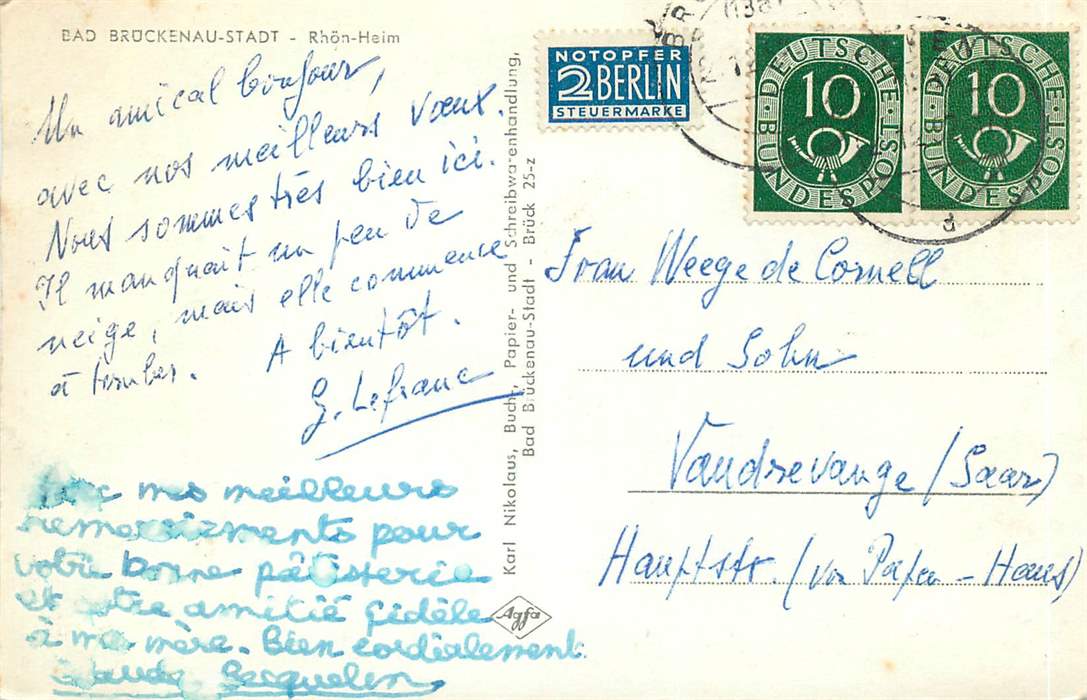 BAD BRÜCKENAU-STADT - Rhön-Heim
Un amical bonjour,
avec nos meilleurs vœux.
Nous sommes très bien ici.
Il manquait un peu de
neige, mais elle commence
à tomber.
A bientôt.
G. Lefranc
mes meilleurs
remerciements pour
votre bonne pâtisserie
et votre amitié fidèle
à ma mère. Bien cordialement
Karl Nikolaus, Buch-, Papier- und Schreibwarenhandlung,
Bad Brückenau-Stadt - Brück 25-z
Agfa
NOTOPFER
2 BERLIN
STEUERMARKE
DEUTSCHE BUNDESPOST
10
DEUTSCHE BUNDESPOST
10
d
Frau Weege de Cornell
und Sohn
Vaudrevange (Saar)
Hauptstr. (von Papen-Haus)